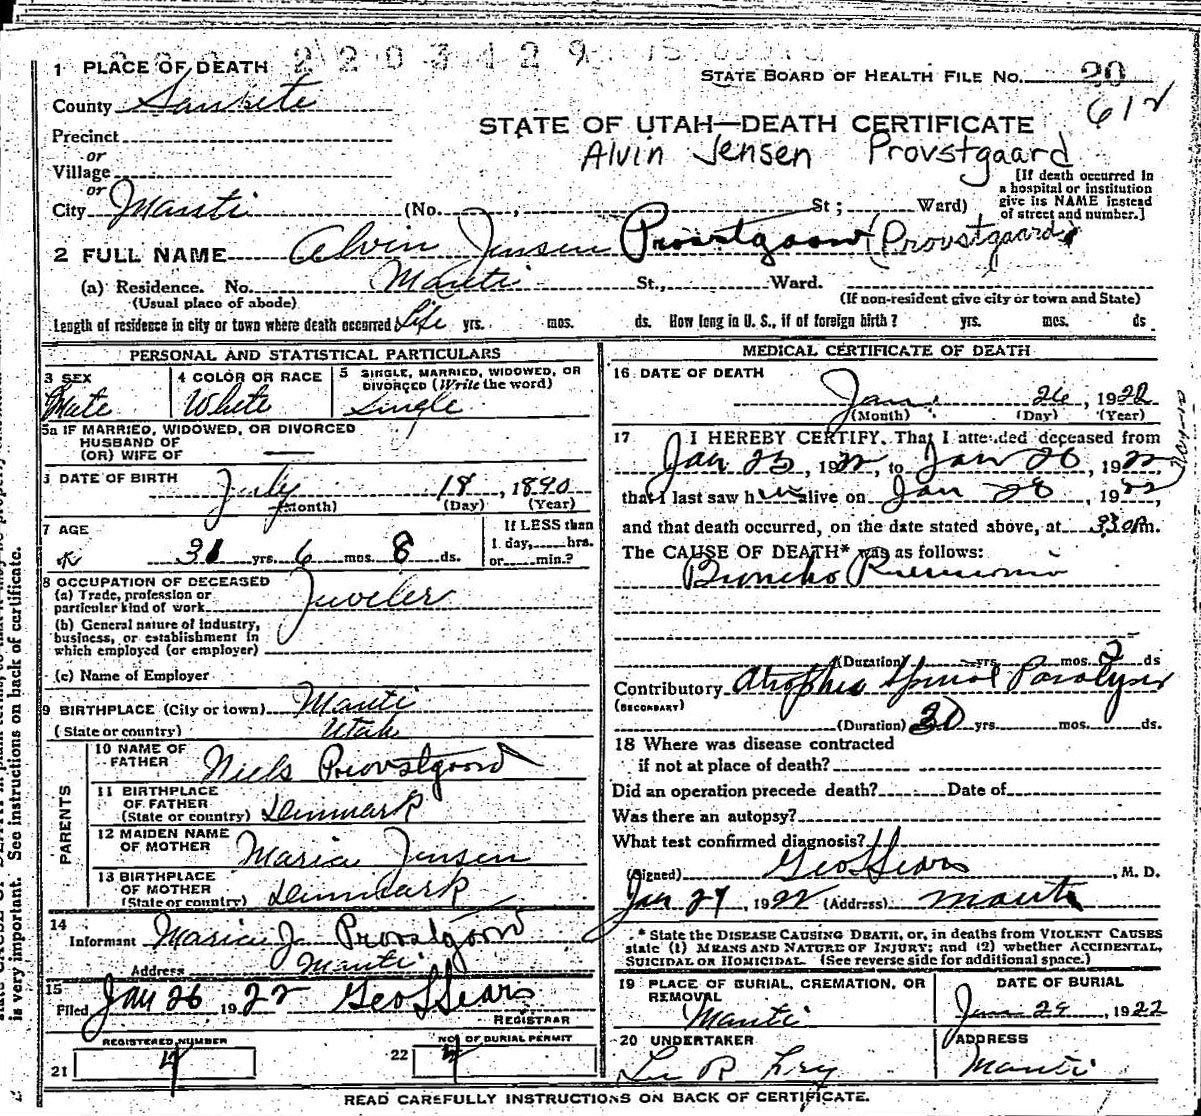 2 2 0 3 4 2 9
1 PLACE OF DEATH
STATE BOARD OF HEALTH FILE No. 20
County Sanpete
612
STATE OF UTAH—DEATH CERTIFICATE
Precinct
Alvin Jensen Provstgaard
or
Village
or
City Manti (No. , St ; Ward)
[If death occurred in
a hospital or institution
give its NAME instead
of street and number.]
2 FULL NAME Alvin Jensen Provstgaard (Provstgaard)
(a) Residence. No. Manti St., Ward.
(Usual place of abode) (If non-resident give city or town and State)
Length of residence in city or town where death occurred Life yrs. mos. ds. How long in U. S., if of foreign birth ? yrs. mos. ds
PERSONAL AND STATISTICAL PARTICULARS
3 SEX
Male
4 COLOR OR RACE
White
5 SINGLE, MARRIED, WIDOWED, OR
DIVORCED (Write the word)
Single
5a IF MARRIED, WIDOWED, OR DIVORCED
HUSBAND OF
(OR) WIFE OF
6 DATE OF BIRTH
July 18, 1890
(Month) (Day) (Year)
7 AGE
31 yrs. 6 mos. 8 ds.
If LESS than
1 day, hrs.
or min.?
8 OCCUPATION OF DECEASED
(a) Trade, profession or
particular kind of work Juveler
(b) General nature of industry,
business, or establishment in
which employed (or employer)
(c) Name of Employer
9 BIRTHPLACE (City or town) Manti
(State or country) Utah
PARENTS
10 NAME OF
FATHER Niels Provstgaard
11 BIRTHPLACE
OF FATHER
(State or country) Denmark
12 MAIDEN NAME
OF MOTHER Maria Jensen
13 BIRTHPLACE
OF MOTHER
(State or country) Denmark
14
Informant Maria J. Provstgaard
Address Manti
15
Filed Jan 26 1922 Geo Sears
REGISTRAR
REGISTERED NUMBER
21 4
NO. OF BURIAL PERMIT
22 4
MEDICAL CERTIFICATE OF DEATH
16 DATE OF DEATH
Jan. 26, 1922
(Month) (Day) (Year)
17 I HEREBY CERTIFY, That I attended deceased from
Jan 25, 1922, to Jan 26 1922
that I last saw him alive on Jan 1922
and that death occurred, on the date stated above, at 330Pm.
The CAUSE OF DEATH* was as follows:
Broncho Pneumonia
(Duration) yrs. mos. 2 ds
Contributory Atrophic Spinal Paralysis
(SECONDARY)
(Duration) 30 yrs. mos. ds.
18 Where was disease contracted
if not at place of death?
Did an operation precede death? Date of
Was there an autopsy?
What test confirmed diagnosis?
(Signed) Geo Sears, M. D.
Jan 27 1922 (Address) Manti
* State the DISEASE CAUSING DEATH, or, in deaths from VIOLENT CAUSES
state (1) MEANS AND NATURE OF INJURY; and (2) whether ACCIDENTAL,
SUICIDAL OR HOMICIDAL. (See reverse side for additional space.)
19 PLACE OF BURIAL, CREMATION, OR
REMOVAL
Manti
DATE OF BURIAL
Jan 29, 1922
20 UNDERTAKER
ADDRESS
Manti
READ CAREFULLY INSTRUCTIONS ON BACK OF CERTIFICATE.
is very important. See instructions on back of certificate.